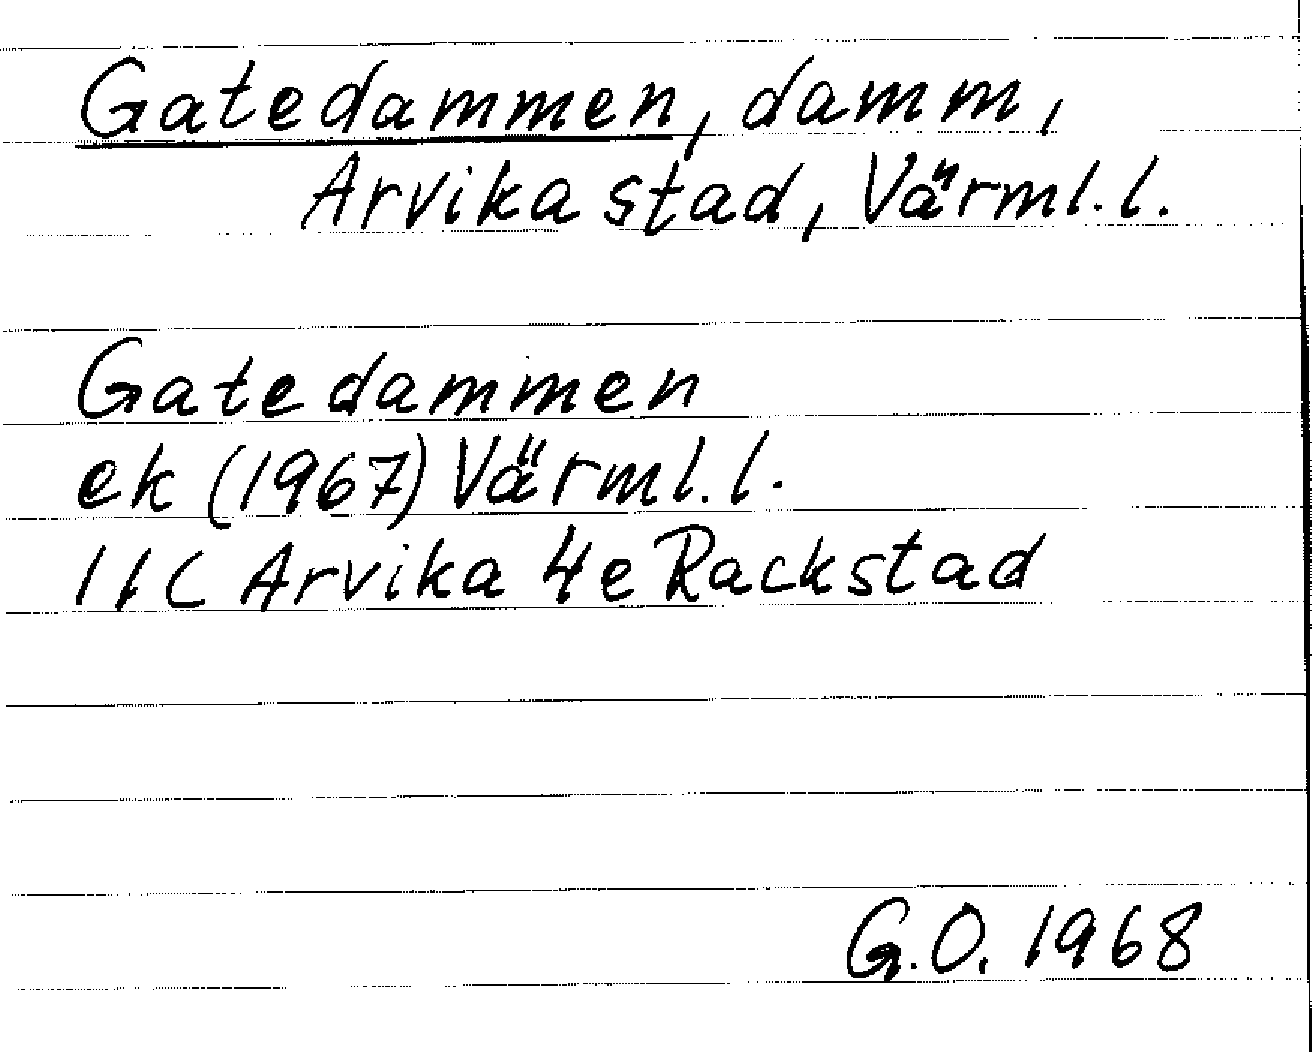 Gatedammen, damm,
Arvika stad, Värml. l.
Gatedammen
ek (1967) Värml. l.
11C Arvika 4e Rackstad
G.O. 1968